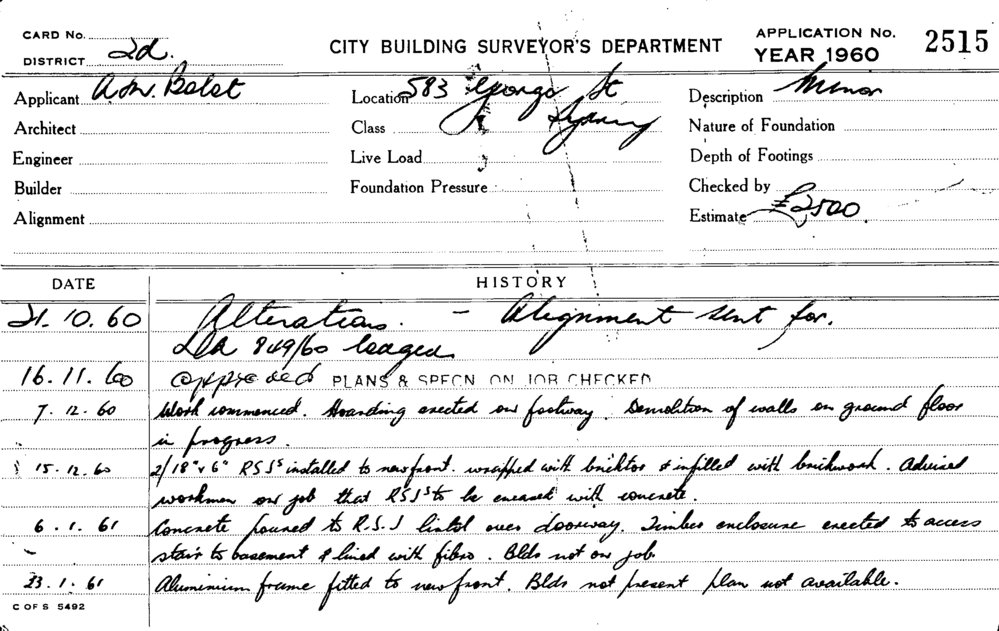 CARD No.
DISTRICT 2d.
CITY BUILDING SURVEYOR'S DEPARTMENT
APPLICATION No. 2515
YEAR 1960
Applicant A.W. Balst
Location 583 George St Sydney
Description Minor
Architect
Class
Nature of Foundation
Engineer
Live Load
Depth of Footings
Builder
Foundation Pressure
Checked by
Alignment
Estimate £2500.
DATE
HISTORY
21.10.60 Alterations. - Alignment sent for.
849/60 lodged
16.11.60 approved PLANS & SPECN ON JOB CHECKED
7.12.60 Work commenced. Hoarding erected on footway. Demolition of walls on ground floor
in progress.
15.12.60 2/18"x6" RSJs installed to new front. wrapped with bricktor & infilled with brickwork. Advised
workmen on job that RSJs to be encased with concrete.
6.1.61 Concrete poured to R.S.J lintol over doorway. Timber enclosure erected to access
stair to basement & lined with fibro. Bldr not on job
23.1.61 Aluminium frame fitted to new front. Bldr not present plan not available.
C OF S 5492